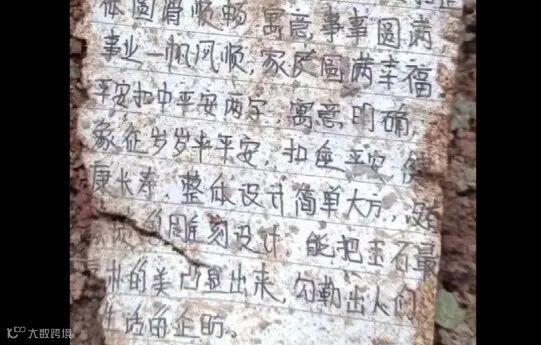 体圆滑顺畅,寓意事事圆满,
事业一帆风顺,家庭圆满幸福
平安扣中平安两字,寓意明确,
象征岁岁平平安,扣座平安,健
康长寿,整体设计简单大方,没有
的雕刻设计,能把玉石最
的美凸显出来,勾勒出人们
生活的企盼。
大数跨境